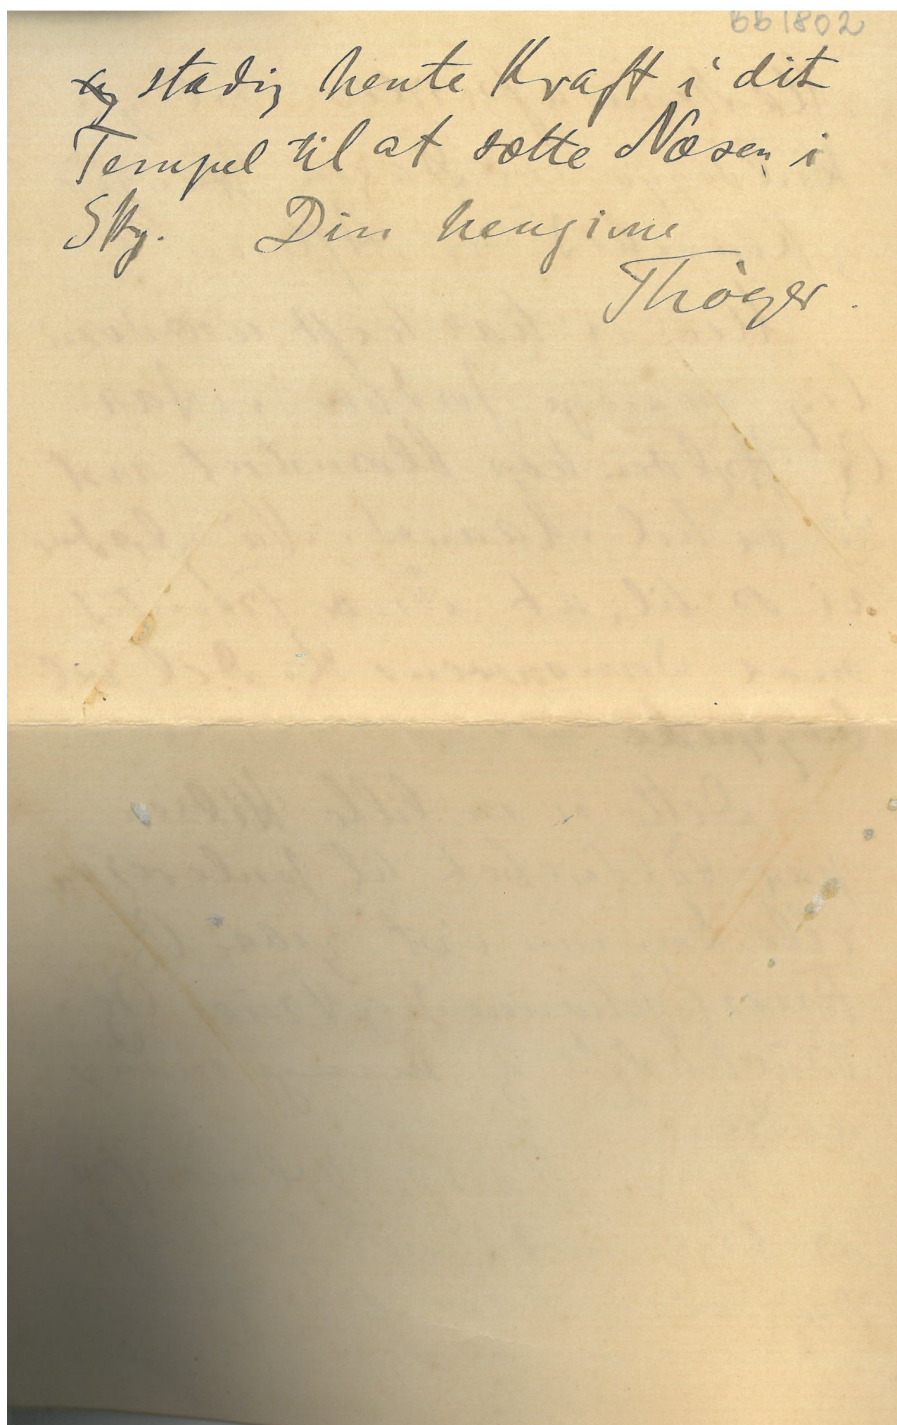 BB1802
og stadig hente Kraft i dit
Tempel til at sætte Næsen i
Sky. Din hengivne
Thøger.